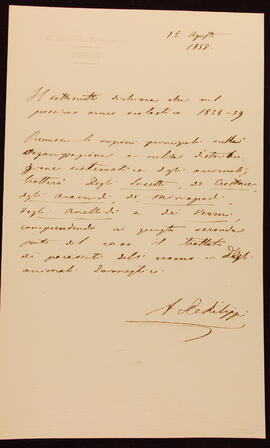 12 Agosto
1858
Il sottoscritto dichiara che nel
prossimo anno scolastico 1858-59
Premesse le nozioni principali sulla
organizzazione e sulla distribu-
zione sistematica degli animali,
tratterà degli Insetti, de' Crostacei,
degli Aracnidi, dei Miriapodi,
degli Anellidi e dei Vermi,
comprendendo in questa seconda
parte del corso il trattato
dei parassiti dell'uomo e degli
animali domestici.